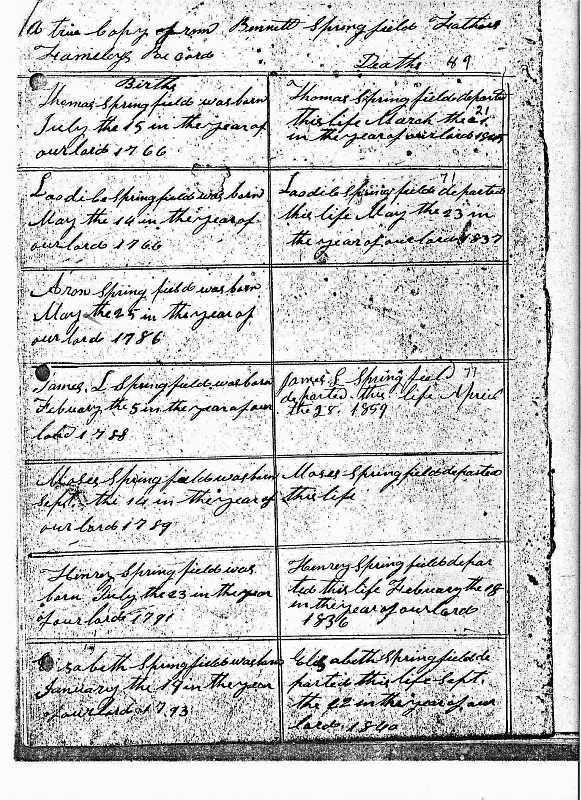 A true Copy from Bennett Springfield Fathers
Fameley Record
Deaths 49
Births
Thomas Springfield was born
July the 15 in the year of
our lord 1766
Thomas Springfield departed
this life March the 21
in the year of our lord
Laodile Springfield was born
May the 14 in the year of
our lord 1766
71
Laodile Springfield departed
this life May the 23 in
the year of our lord 1837
Aron Springfield was born
May the 25 in the year of
our lord 1786
James. L Springfield was born
Febuary the 5 in the year of our
lord 1788
James L Springfield 71
departed this life Apriel
the 28. 1859
Moses Springfield was born
Sept. the 14 in the year of
our lord 1789
Moses Springfield departed
this life
Hinrey Springfield was
born July the 23 in the year
of our lord 1791
Henrey Springfield depar
ted this life February the 18
in the year of our lord
1836
Elisabeth Springfield was born
January the 19 in the year
of our lord 17.93
Elisabeth Springfield de
parted this life Sept.
the 22 in the year of our
lord 1840